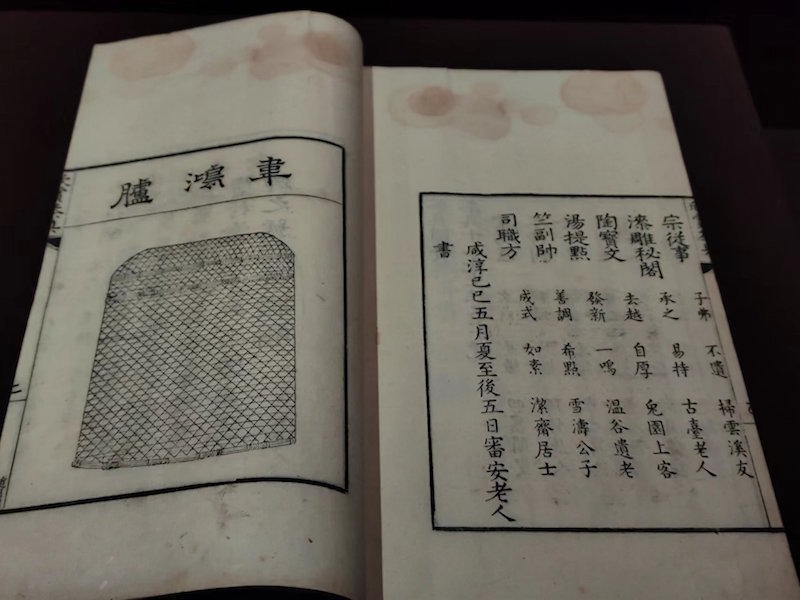 宗從事 子弗 不遺 掃雲溪友
漆雕秘閣 承之 易持 古臺老人
陶寶文 去越 自厚 兔園上客
湯提點 發新 一鳴 溫谷遺老
竺副帥 善調 希點 雪濤公子
司職方 成式 如素 潔齋居士
咸淳己巳五月夏至後五日審安老人
書
韋鴻臚
二